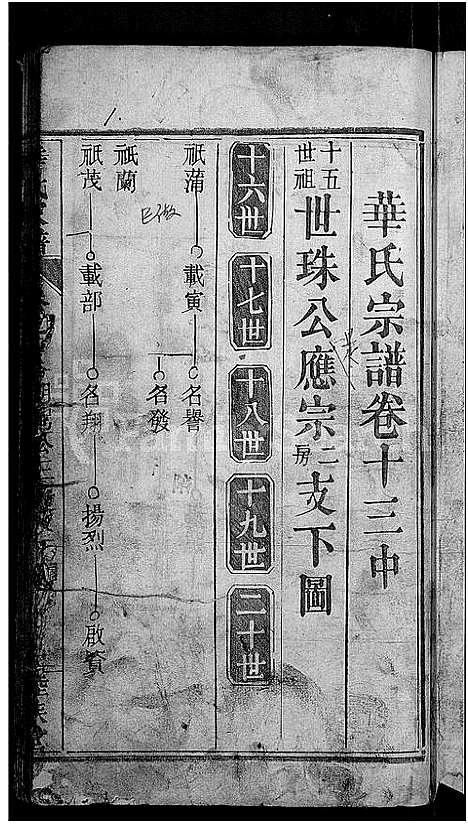 華氏宗譜卷十三中
十五世祖世珠公應宗二房支下圖
十六世 十七世 十八世 十九世 二十世
祇蒲 載寅 名譽
名發
祇蘭
祇茂 載部 名翔 揚烈 啟賓